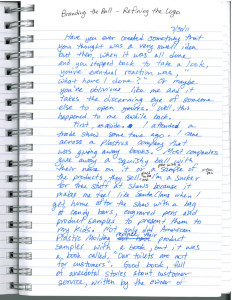 Branding the Ball - Refining the Logo
7/30/11
Have you ever created something that
you thought was a very smart idea,
but then, when it was all done
and you stopped back to take a look,
you're eventual reaction was, "
What have I done?" Or maybe
you're oblivious like me and it
takes the discerning eye of someone
else to open yours. Well, this
happened to me awhile back.
First, I attended a
trade show some time ago. I came
across a Plastics company that
was giving away books. Most companies
give away a squishy ball with
their name on it or a sample of
the products they sell. I'm a sucker
for free stuff at shows because it
makes me feel like Santa Claus when I
get home after the show with a bag
of candy bars, engraved pens and
product samples to present them to
my kids. Not only did American
Plastic Molding product
samples with a book, but it was
a book called, "Our toilets are not
for customers". Good book, full
of anecdotal stories about customer
service, written by the owner of